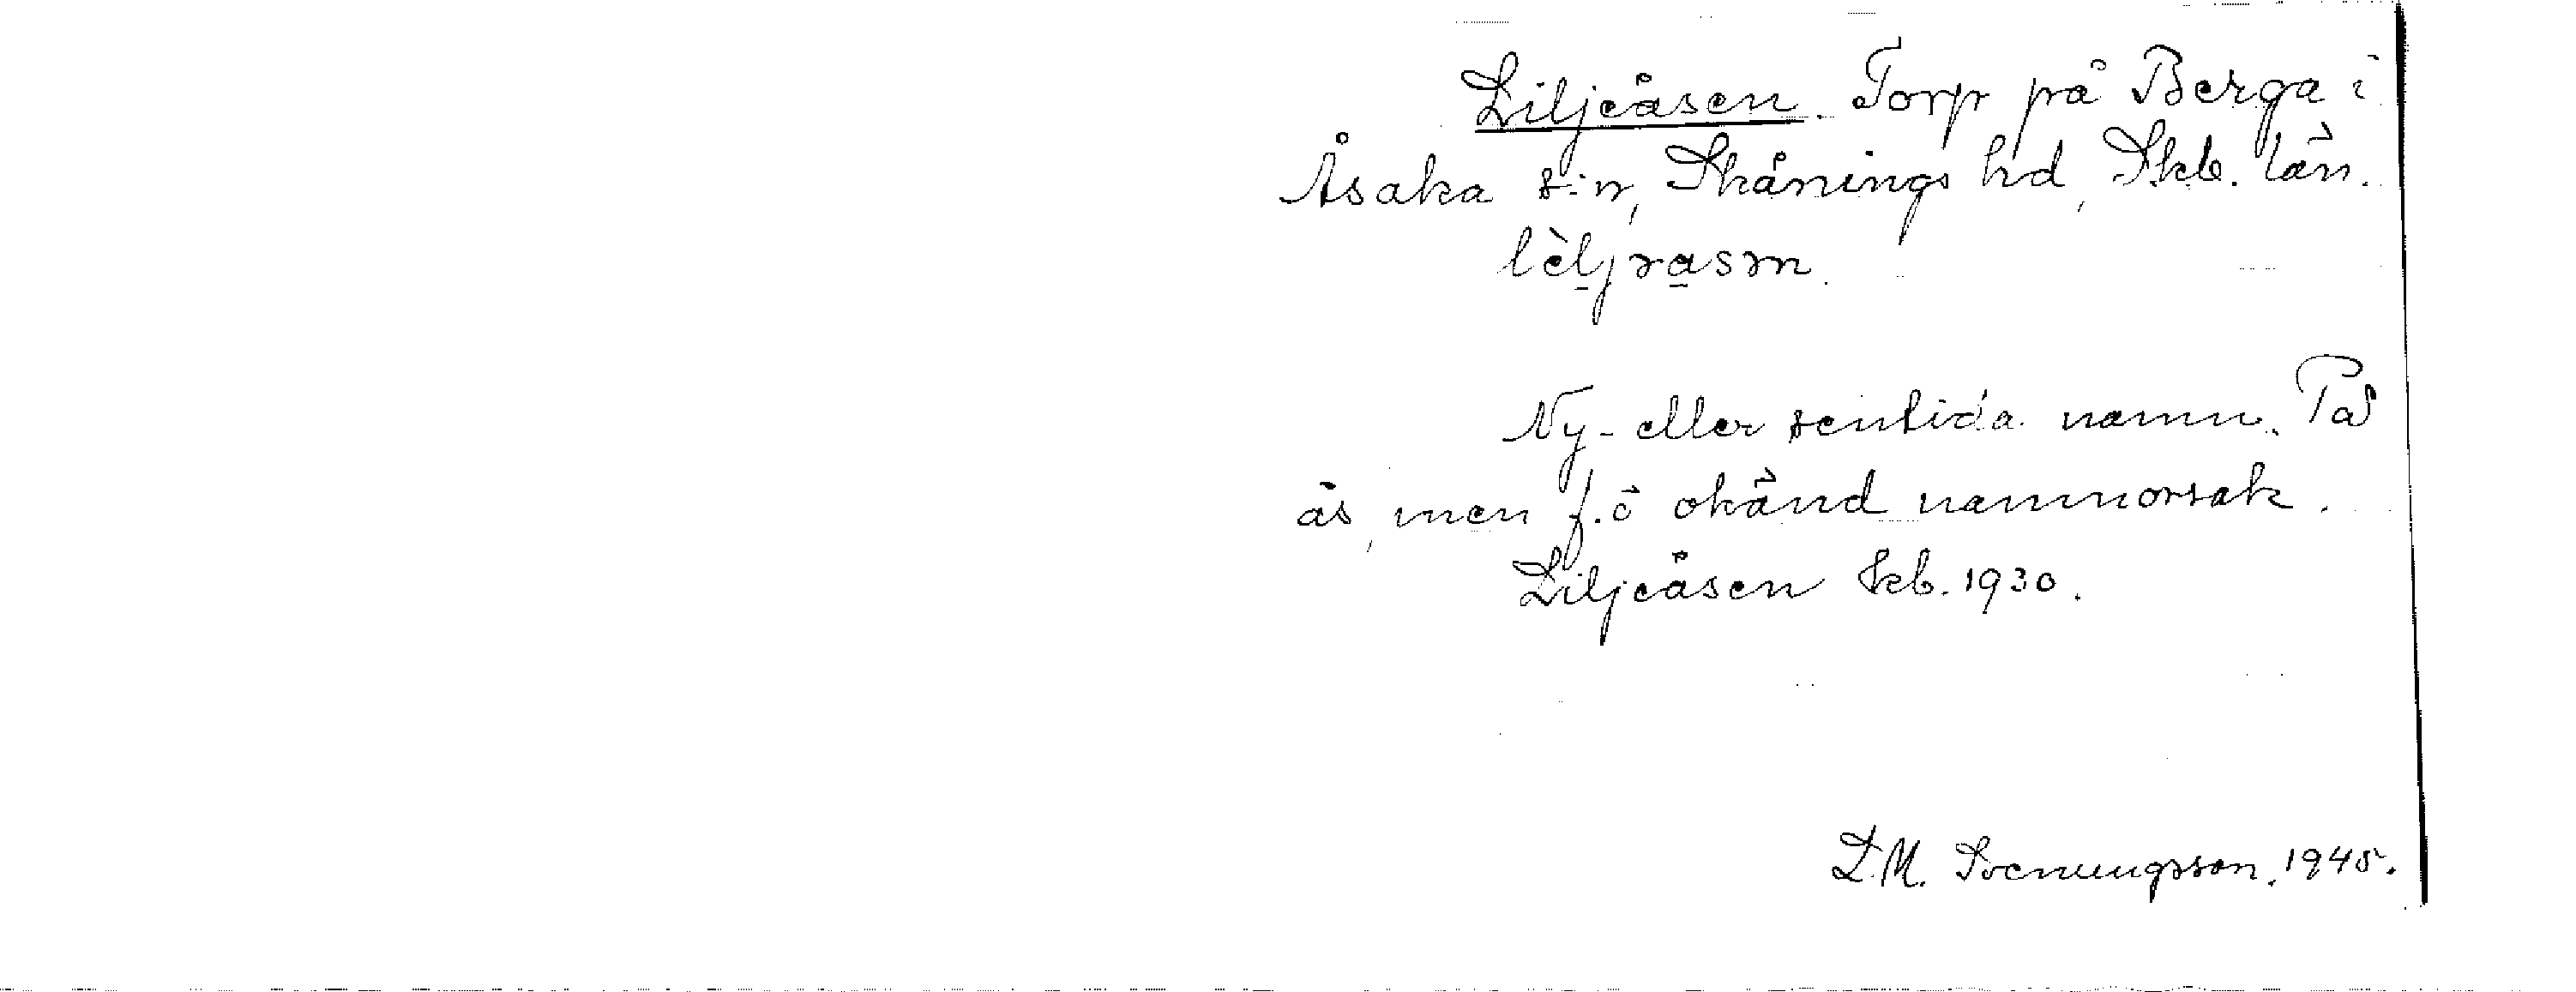 Liljeåsen. Torp på Berga i
Åsaka s:n, Skånings hd, Skb. län.
Ny- eller sentida namn. På
ås, men f.ö okänd namnorsak.
Liljeåsen Skb. 1930.
L.M. Svenungsson. 1945.